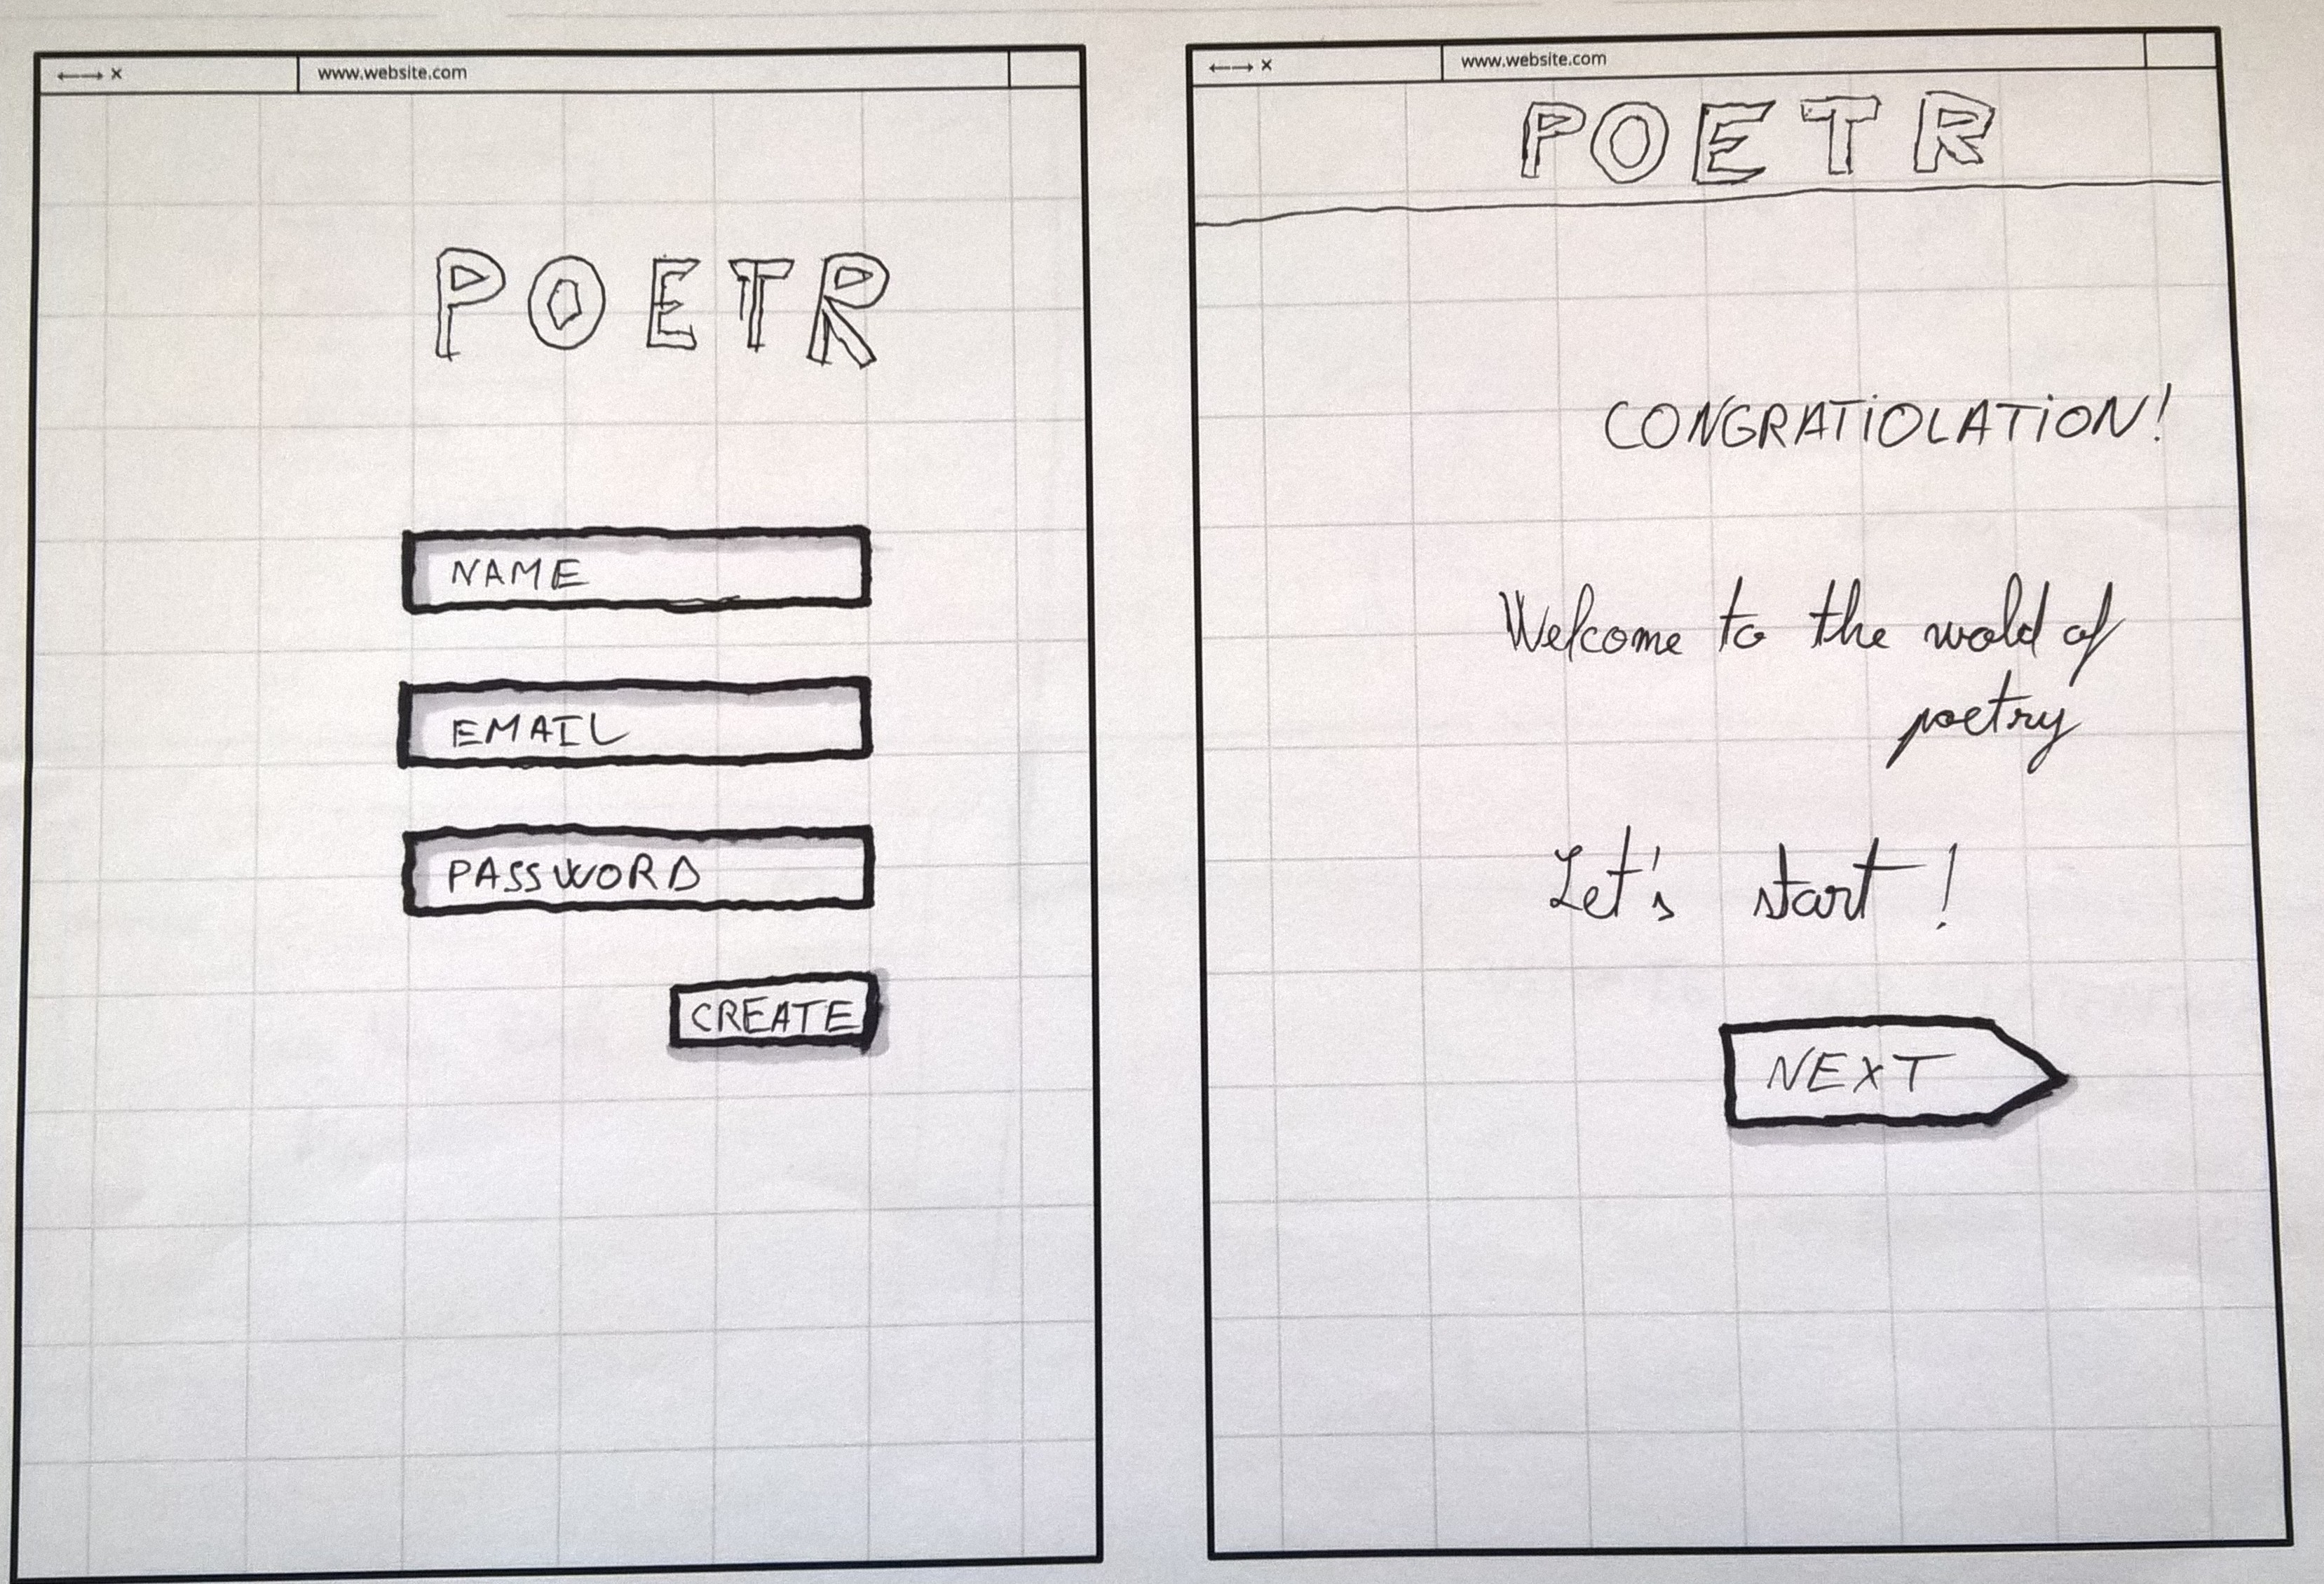 www.website.com
POETR
NAME
EMAIL
PASSWORD
CREATE
www.website.com
POETR
CONGRATIOLATION!
Welcome to the wold of
poetry
Let's start!
NEXT